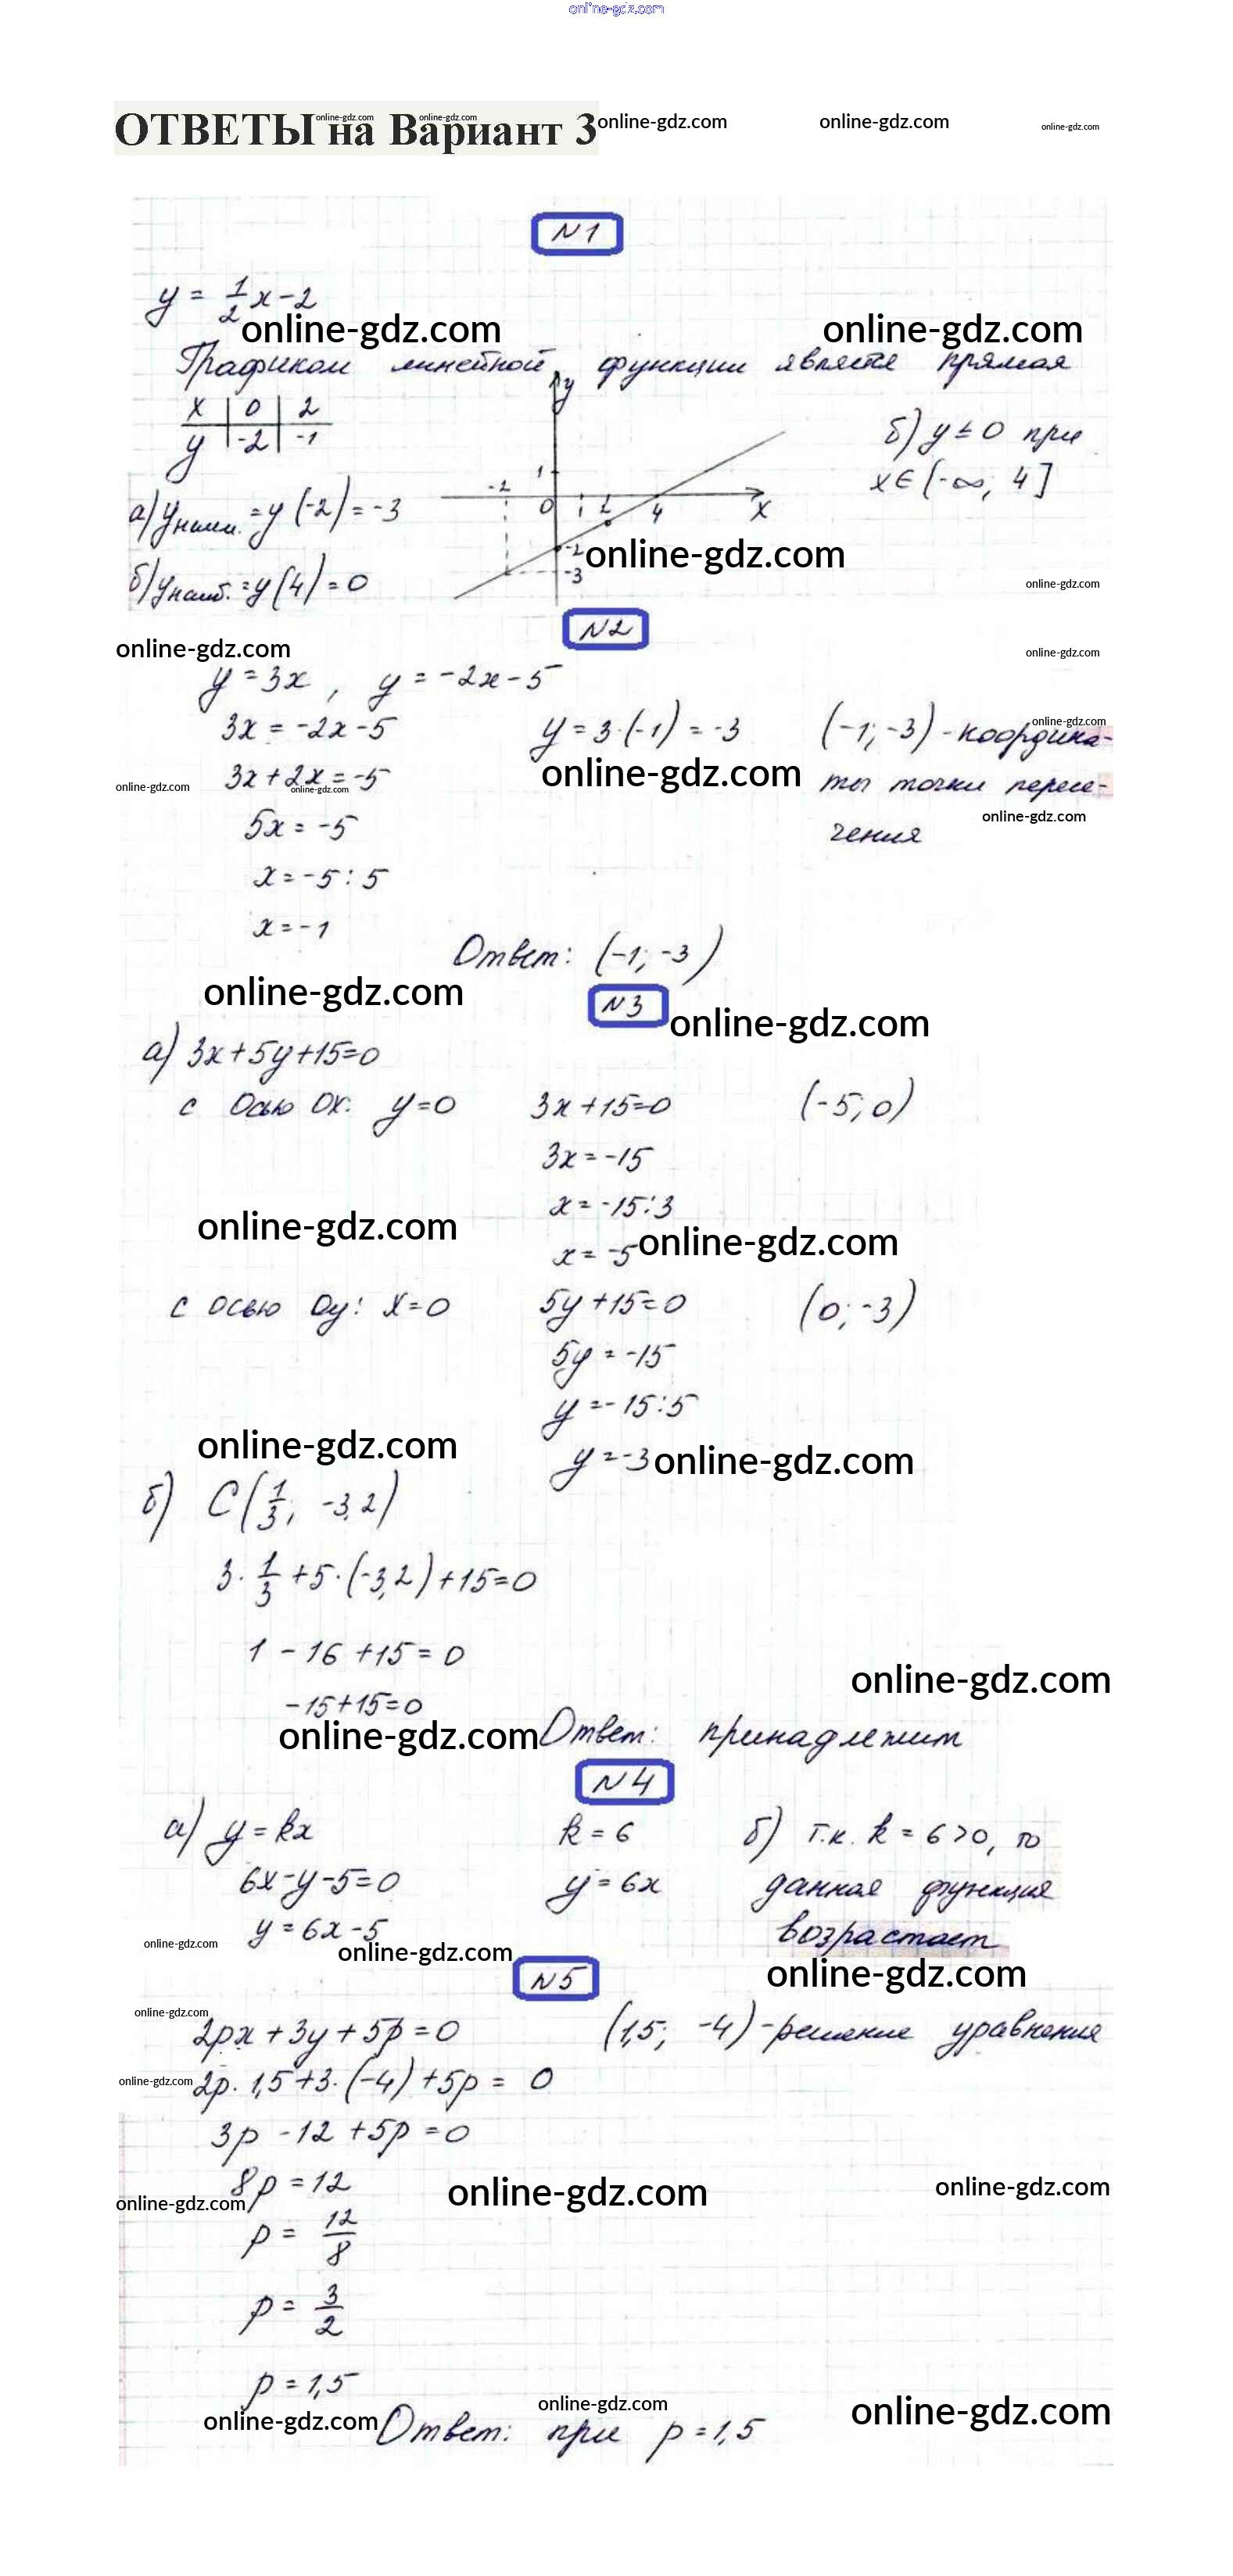 online-gdz.com
ОТВЕТЫ на Вариант 3
online-gdz.com online-gdz.com online-gdz.com online-gdz.com online-gdz.com
N1
y = 1/2 x - 2
online-gdz.com online-gdz.com
Графиком линейной функции является прямая
x | 0 | 2
y | -2 | -1
y
1
-2 0 1 2 4 x
-2
-3
б) y ≤ 0 при
x ∈ (-∞; 4]
а) yнаим. = y(-2) = -3
online-gdz.com
б) yнаиб. = y(4) = 0
online-gdz.com
N2
online-gdz.com online-gdz.com
y = 3x , y = -2x - 5
3x = -2x - 5 y = 3·(-1) = -3 (-1; -3) - координа-
online-gdz.com
3x + 2x = -5 ты точки пересе-
online-gdz.com online-gdz.com online-gdz.com
5x = -5 чения
online-gdz.com
x = -5 : 5
x = -1
Ответ: (-1; -3)
online-gdz.com
N3
online-gdz.com
а) 3x + 5y + 15 = 0
с осью Ox: y = 0 3x + 15 = 0 (-5; 0)
3x = -15
x = -15 : 3
online-gdz.com
x = -5
online-gdz.com
с осью Oy: x = 0 5y + 15 = 0 (0; -3)
5y = -15
y = -15 : 5
online-gdz.com
y = -3
online-gdz.com
б) C(1/3; -3,2)
3 · 1/3 + 5 · (-3,2) + 15 = 0
1 - 16 + 15 = 0
online-gdz.com
-15 + 15 = 0
online-gdz.com
Ответ: принадлежит
N4
а) y = kx k = 6 б) т.к. k = 6 > 0, то
6x - y - 5 = 0 y = 6x данная функция
y = 6x - 5 возрастает
online-gdz.com online-gdz.com
online-gdz.com
N5
online-gdz.com
2px + 3y + 5p = 0 (1,5; -4) - решение уравнения
online-gdz.com
2p · 1,5 + 3 · (-4) + 5p = 0
3p - 12 + 5p = 0
8p = 12
online-gdz.com online-gdz.com online-gdz.com
p = 12/8
p = 3/2
p = 1,5
online-gdz.com online-gdz.com online-gdz.com
Ответ: при p = 1,5